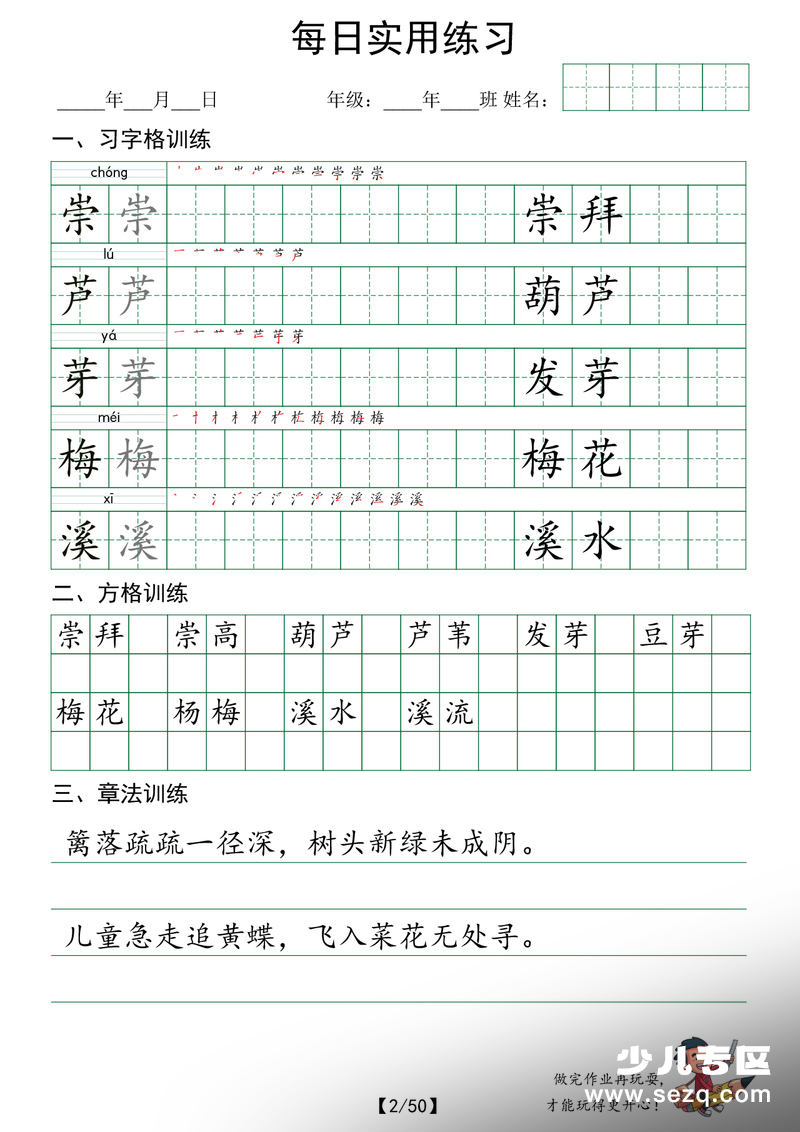 每日实用练习
_____年___月___日 年级：____年____班 姓名：
一、习字格训练
chóng
崇 崇 崇 拜
lú
芦 芦 葫 芦
yá
芽 芽 发 芽
méi
梅 梅 梅 花
xī
溪 溪 溪 水
二、方格训练
崇 拜 崇 高 葫 芦 芦 苇 发 芽 豆 芽
梅 花 杨 梅 溪 水 溪 流
三、章法训练
篱落疏疏一径深，树头新绿未成阴。
儿童急走追黄蝶，飞入菜花无处寻。
做完作业再玩耍，
才能玩得更开心！
【2/50】
少儿专区
www.sezq.com